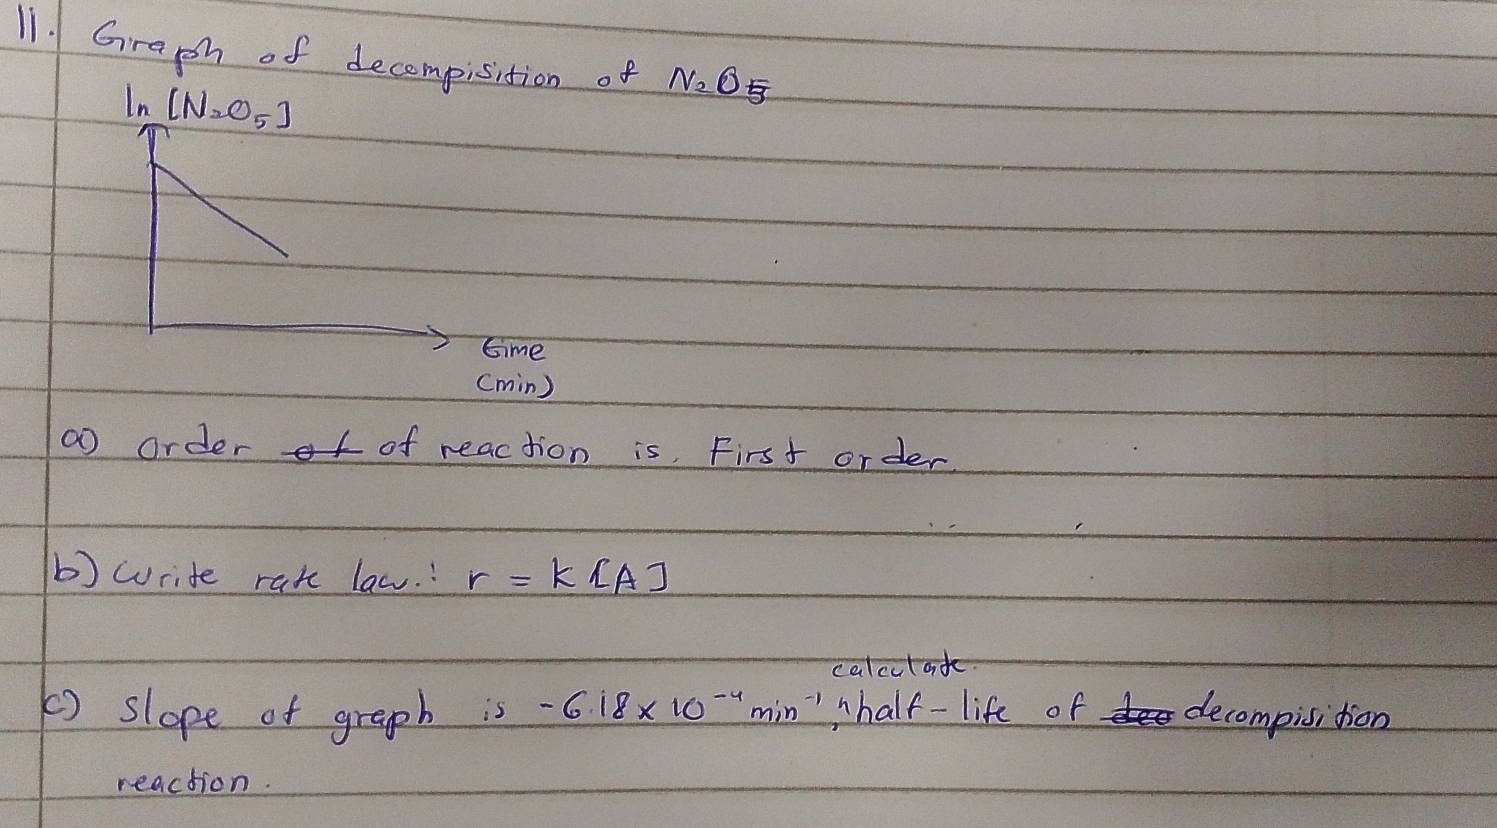 11. Graph of decompisition of N₂O₅
ln [N₂O₅]
time
(min)
a) order of of reaction is. First order.
b) write rate law.: r = K [A]
calculate.
c) slope of graph is -6.18 x 10⁻⁴ min⁻¹, half-life of decompisition
reaction.